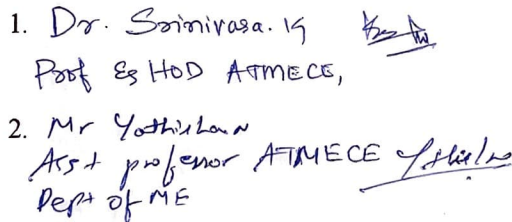 1. Dr. Srinivasa. K
Prof & HOD ATMECE,
2. Mr
Asst professor ATMECE
Dept of ME